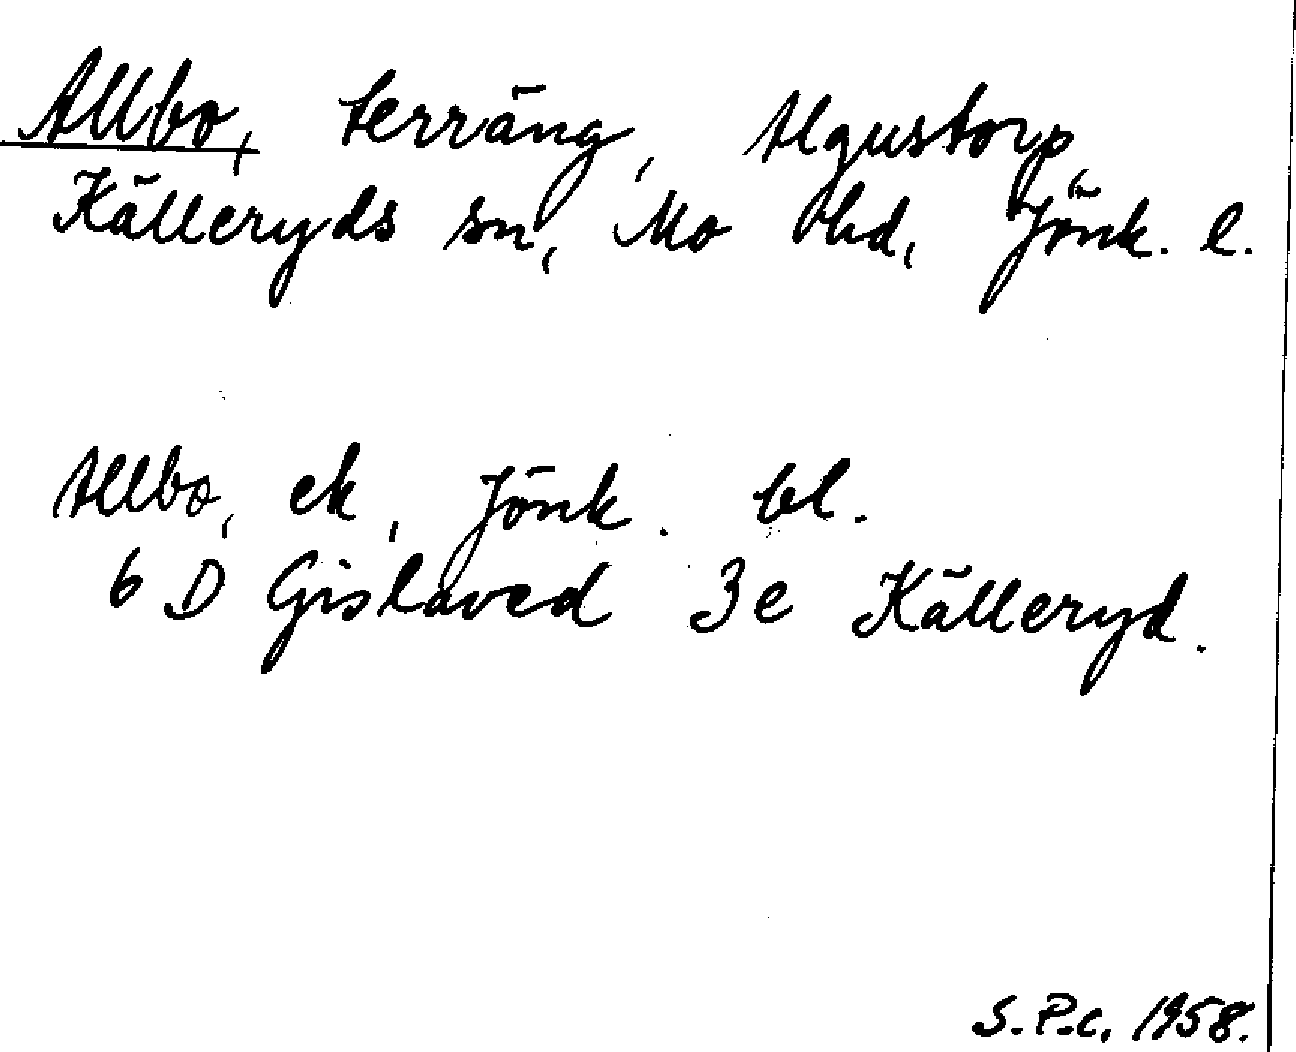 Allbo, terräng, Algustorp,
Källeryds sn, Mo hd, Jönk. l.
Allbo, ek, Jönk. bl.
6 D Gislaved 3e Källeryd.
S.P.C. 1958.